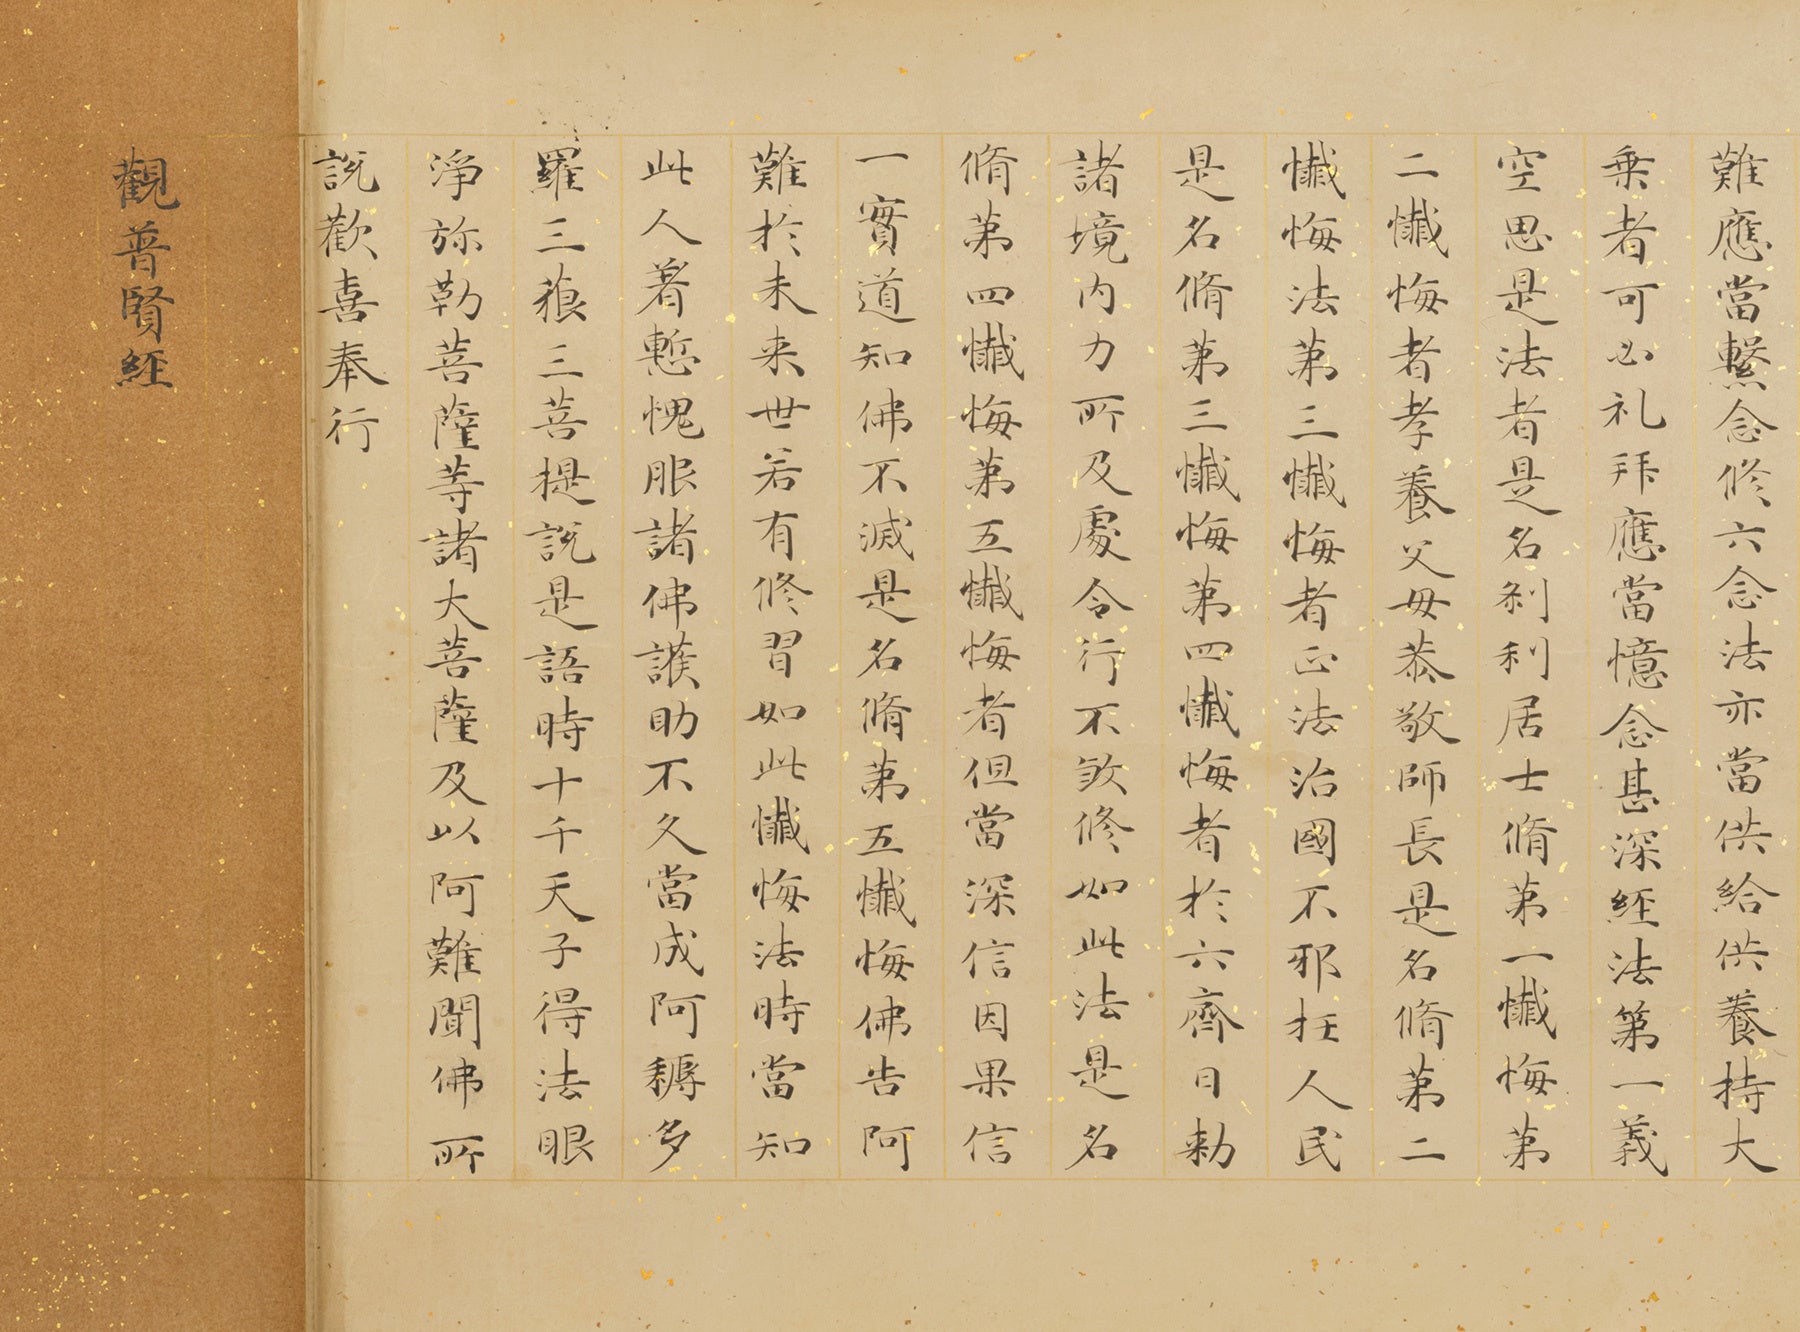 難應當繫念修六念法亦當供給供養持大
乗者可必礼拜應當憶念甚深經法第一義
空思是法者是名刹利居士脩第一懴悔第
二懴悔者孝養父母恭敬師長是名脩第二
懴悔法第三懴悔者正法治國不邪抂人民
是名脩第三懴悔第四懴悔者於六齋日勅
諸境内力所及處令行不煞修如此法是名
脩第四懴悔第五懴悔者但當深信因果信
一實道知佛不滅是名脩第五懴悔佛告阿
難於未来世若有修習如此懴悔法時當知
此人著慙愧服諸佛護助不久當成阿耨多
羅三藐三菩提說是語時十千天子得法眼
淨弥勒菩薩等諸大菩薩及以阿難聞佛所
說歡喜奉行
觀普賢経